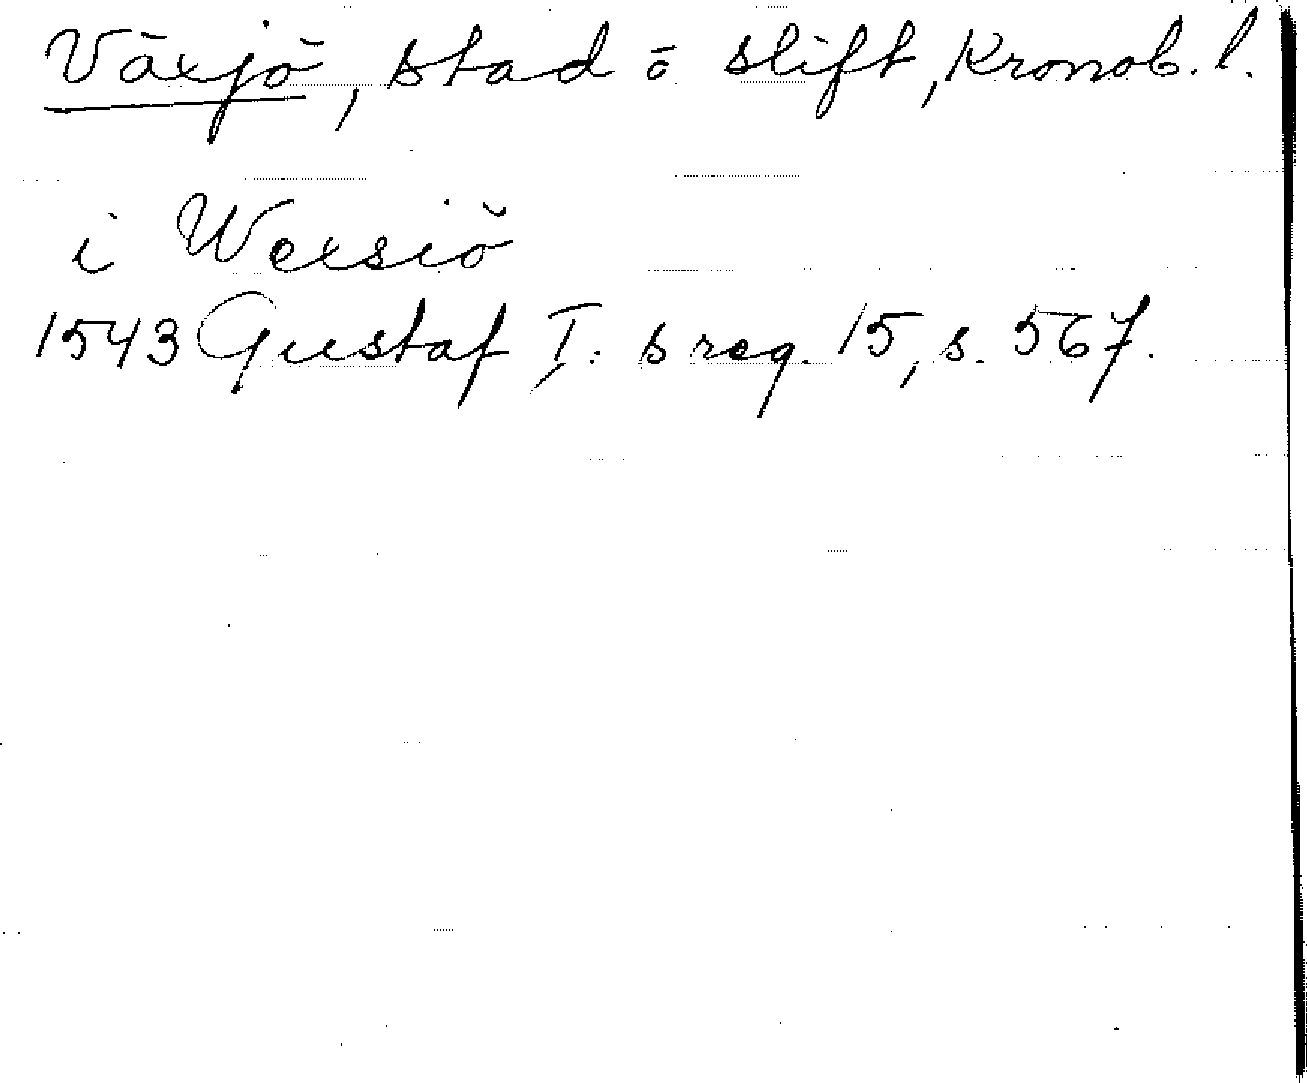 Växjö, stad o stift, Kronob. l.
i Wexsiö
1543 Gustaf I:s reg. 15, s. 567.